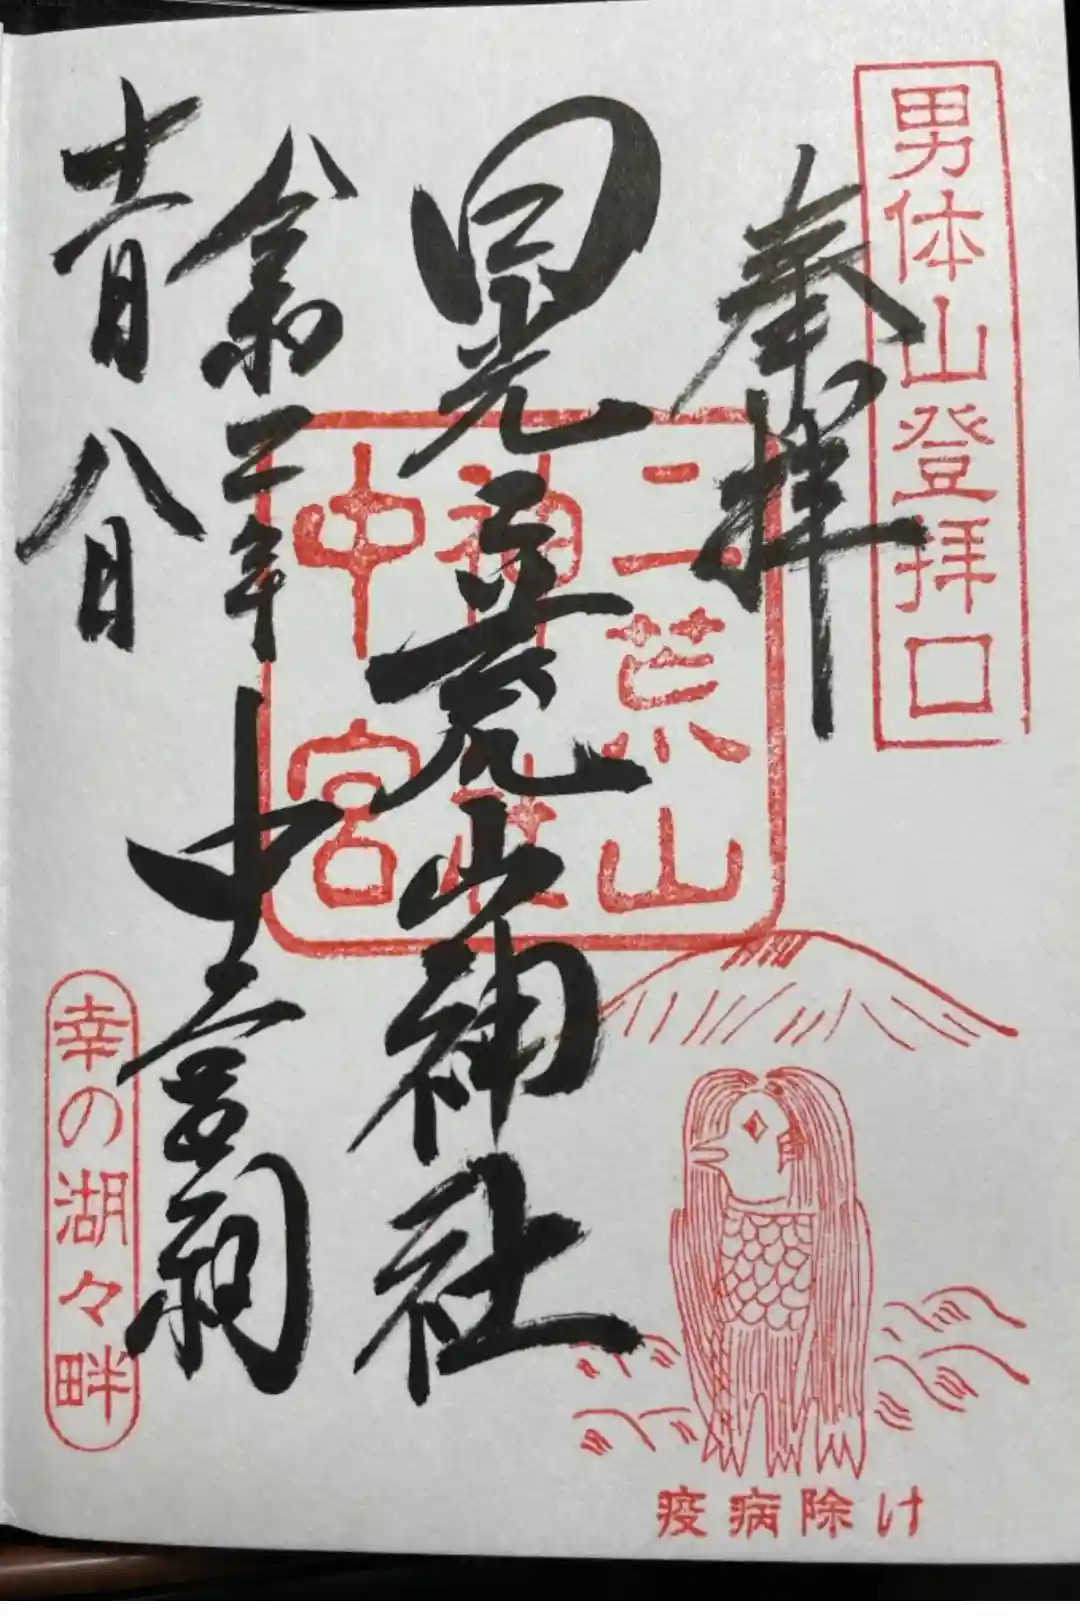 男体山登拝口
奉拝
日光二荒山神社
二荒山
神社
中宮
令和二年
中宮祠
十一月八日
幸の湖々畔
疫病除け